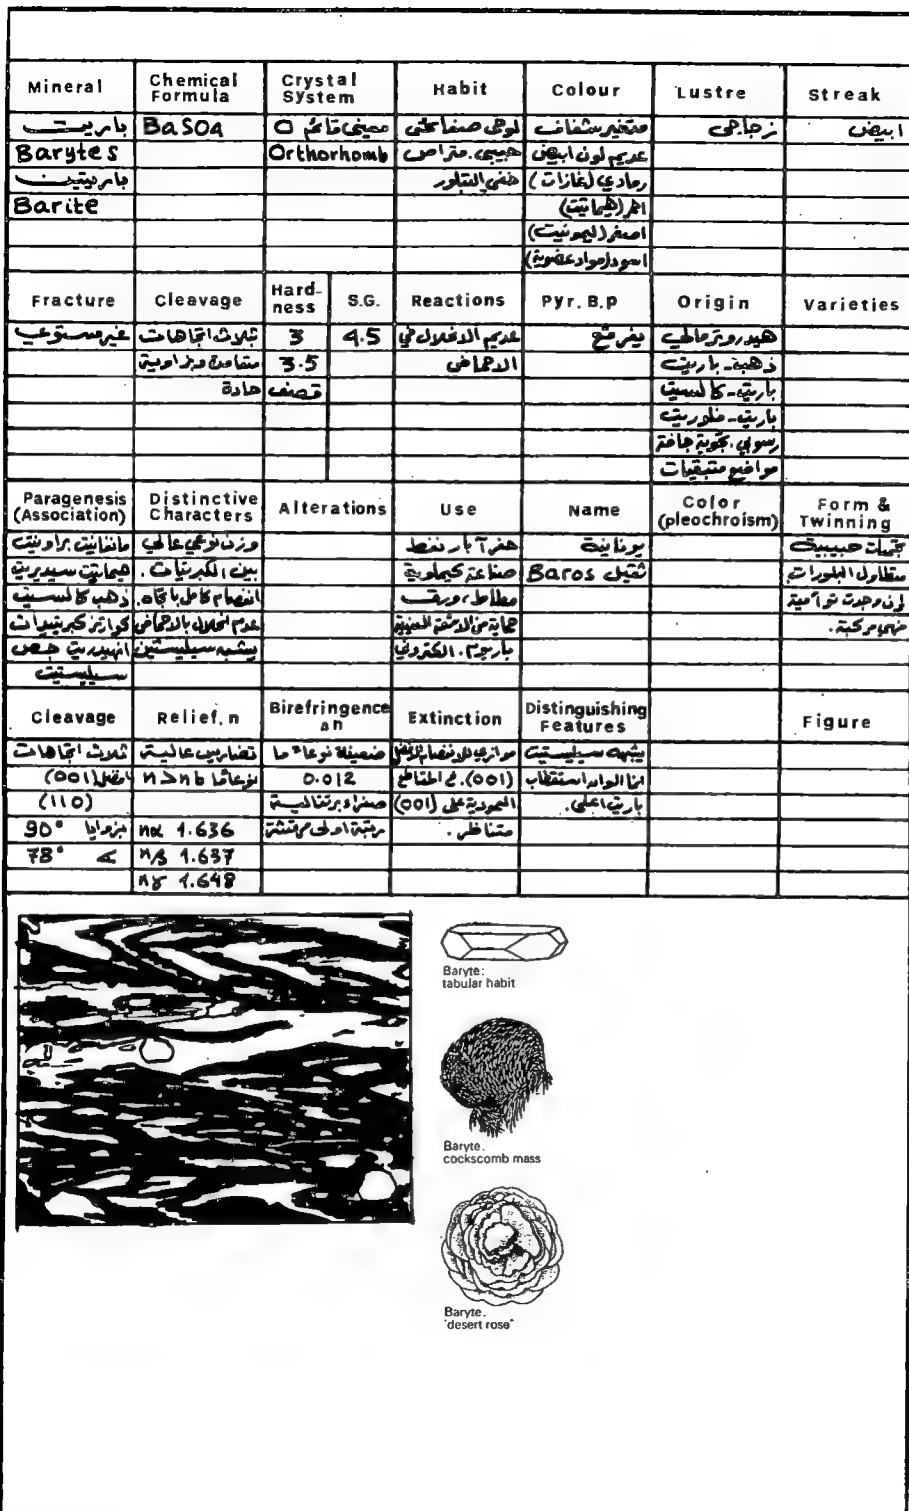 Mineral Chemical Formula Crystal System Habit Colour Lustre Streak
باريت BaSO4 معيني قائم O لوحي صفائحي متغير شفاف زجاجي ابيض
Barytes Orthorhomb حبيبي. متراص عديم لون ابيض
باريتين خفي التبلور رمادي (غازات)
Barite احمر (هيماتيت)
اصفر (ليمونيت)
اسود (مواد عضوية)
Fracture Cleavage Hard-ness S.G. Reactions Pyr. B.p Origin Varieties
غير مستوي ثلاث اتجاهات 3 4.5 عديم الانحلال في يفرقع هيدروترمالي
متعامدة وبزاوية 3.5 الاحماض ذهب - باريت
حادة قصف باريت - كالسيت
باريت - فلوريت
رسوبي. بحرية جافة
مواضع متبقيات
Paragenesis (Association) Distinctive Characters Alterations Use Name Color (pleochroism) Form & Twinning
مانغانيت براونيت وزن نوعي عالي حفر آبار نفط يونانية تجمعات حبيبية
هيماتيت سيديريت بين الكبريتات. صناعة كيماوية Baros ثقيل متطاول البلورات.
ذهب كالسيت انفصام كامل باتجاه. مطاط، ورق
كوارتز كبريتيدات عدم انحلال بالاحماض حماية من الاشعة السينية فهي مركبة.
انهيدريت جص يشبه سيليستين باريوم. الكتروني
سيليستيت
Cleavage Relief, n Birefringence Δn Extinction Distinguishing Features Figure
ثلاث اتجاهات تضاريس عالية ضعيفة نوعا ما موازي للانفصام يشبه سيليستيت
افضل (001) نوعا ما n > nb 0.012 (001). في المقاطع انما الوان استقطاب
(110) صفراء برتقالية العمودية على (001) باريت اعلى.
بزوايا 90° nα 1.636 رتبة اولى متناظر.
78° nβ 1.637
nγ 1.648
Baryte:
tabular habit
Baryte.
cockscomb mass
Baryte.
'desert rose'